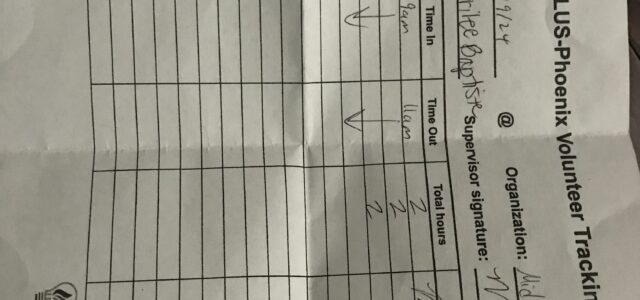 LUS-Phoenix Volunteer Trackin
9/24 @ Organization: Mid
rilee Baptiste Supervisor signature:
Time In Time Out Total hours
9am 11am 2
2
2